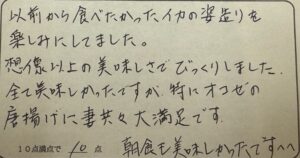 以前から食べたかったイカの姿造りを
楽しみにしてました。
想像以上の美味しさでびっくりしました.
全て美味しかったですが、特にオコゼの
唐揚げに妻共々大満足です.
10点満点で 10 点 朝食も美味しかったですへへ